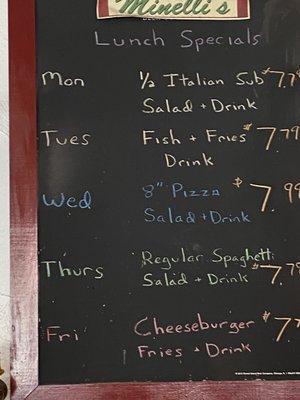 Minelli's
Lunch Specials
Mon ½ Italian Sub $7.7
Salad + Drink
Tues Fish + Fries $7.79
Drink
Wed 8" Pizza $7.99
Salad + Drink
Thurs Regular Spaghetti
Salad + Drink $7.79
Fri Cheeseburger $7.7
Fries + Drink